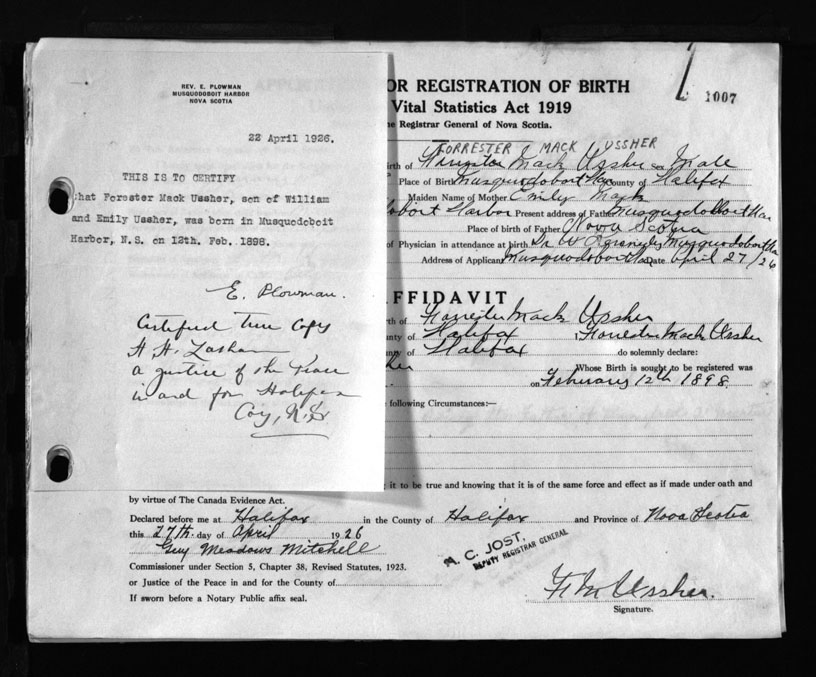 REV. E. PLOWMAN
MUSQUODOBOIT HARBOR
NOVA SCOTIA
22 April 1926.
THIS IS TO CERTIFY
that Forester Mack Ussher, son of William
and Emily Ussher, was born in Musquodoboit
Harbor, N.S. on 12th. Feb. 1898.
E. Plowman.
Certified true copy
A justice of the Peace
in and for Halifax
Coy, N.S.
OR REGISTRATION OF BIRTH
1007
Vital Statistics Act 1919
e Registrar General of Nova Scotia.
FORRESTER MACK USSHER
rth of Forrester Mack Ussher sex Male
Place of Birth Musquodoboit Har County of Halifax
Maiden Name of Mother Emily Mack
oboit Harbor Present address of Father Musquodoboit Har
Place of birth of Father Nova Scotia
of Physician in attendance at birth Dr W Musquodoboit Har
Address of Applicant Musquodoboit Har Date April 27/26
FFIDAVIT
rth of Forrester Mack Ussher
nty of Halifax I Forrester Mack Ussher
ty of Halifax do solemnly declare:
her Whose Birth is sought to be registered was
on February 12th 1898.
following Circumstances:—
g it to be true and knowing that it is of the same force and effect as if made under oath and
by virtue of The Canada Evidence Act.
Declared before me at Halifax in the County of Halifax and Province of Nova Scotia
this 27th. day of April 1926
Guy Meadows Mitchell
A. C. JOST,
DEPUTY REGISTRAR GENERAL
Commissioner under Section 5, Chapter 38, Revised Statutes, 1923.
or Justice of the Peace in and for the County of
If sworn before a Notary Public affix seal.
F. M. Ussher.
Signature.